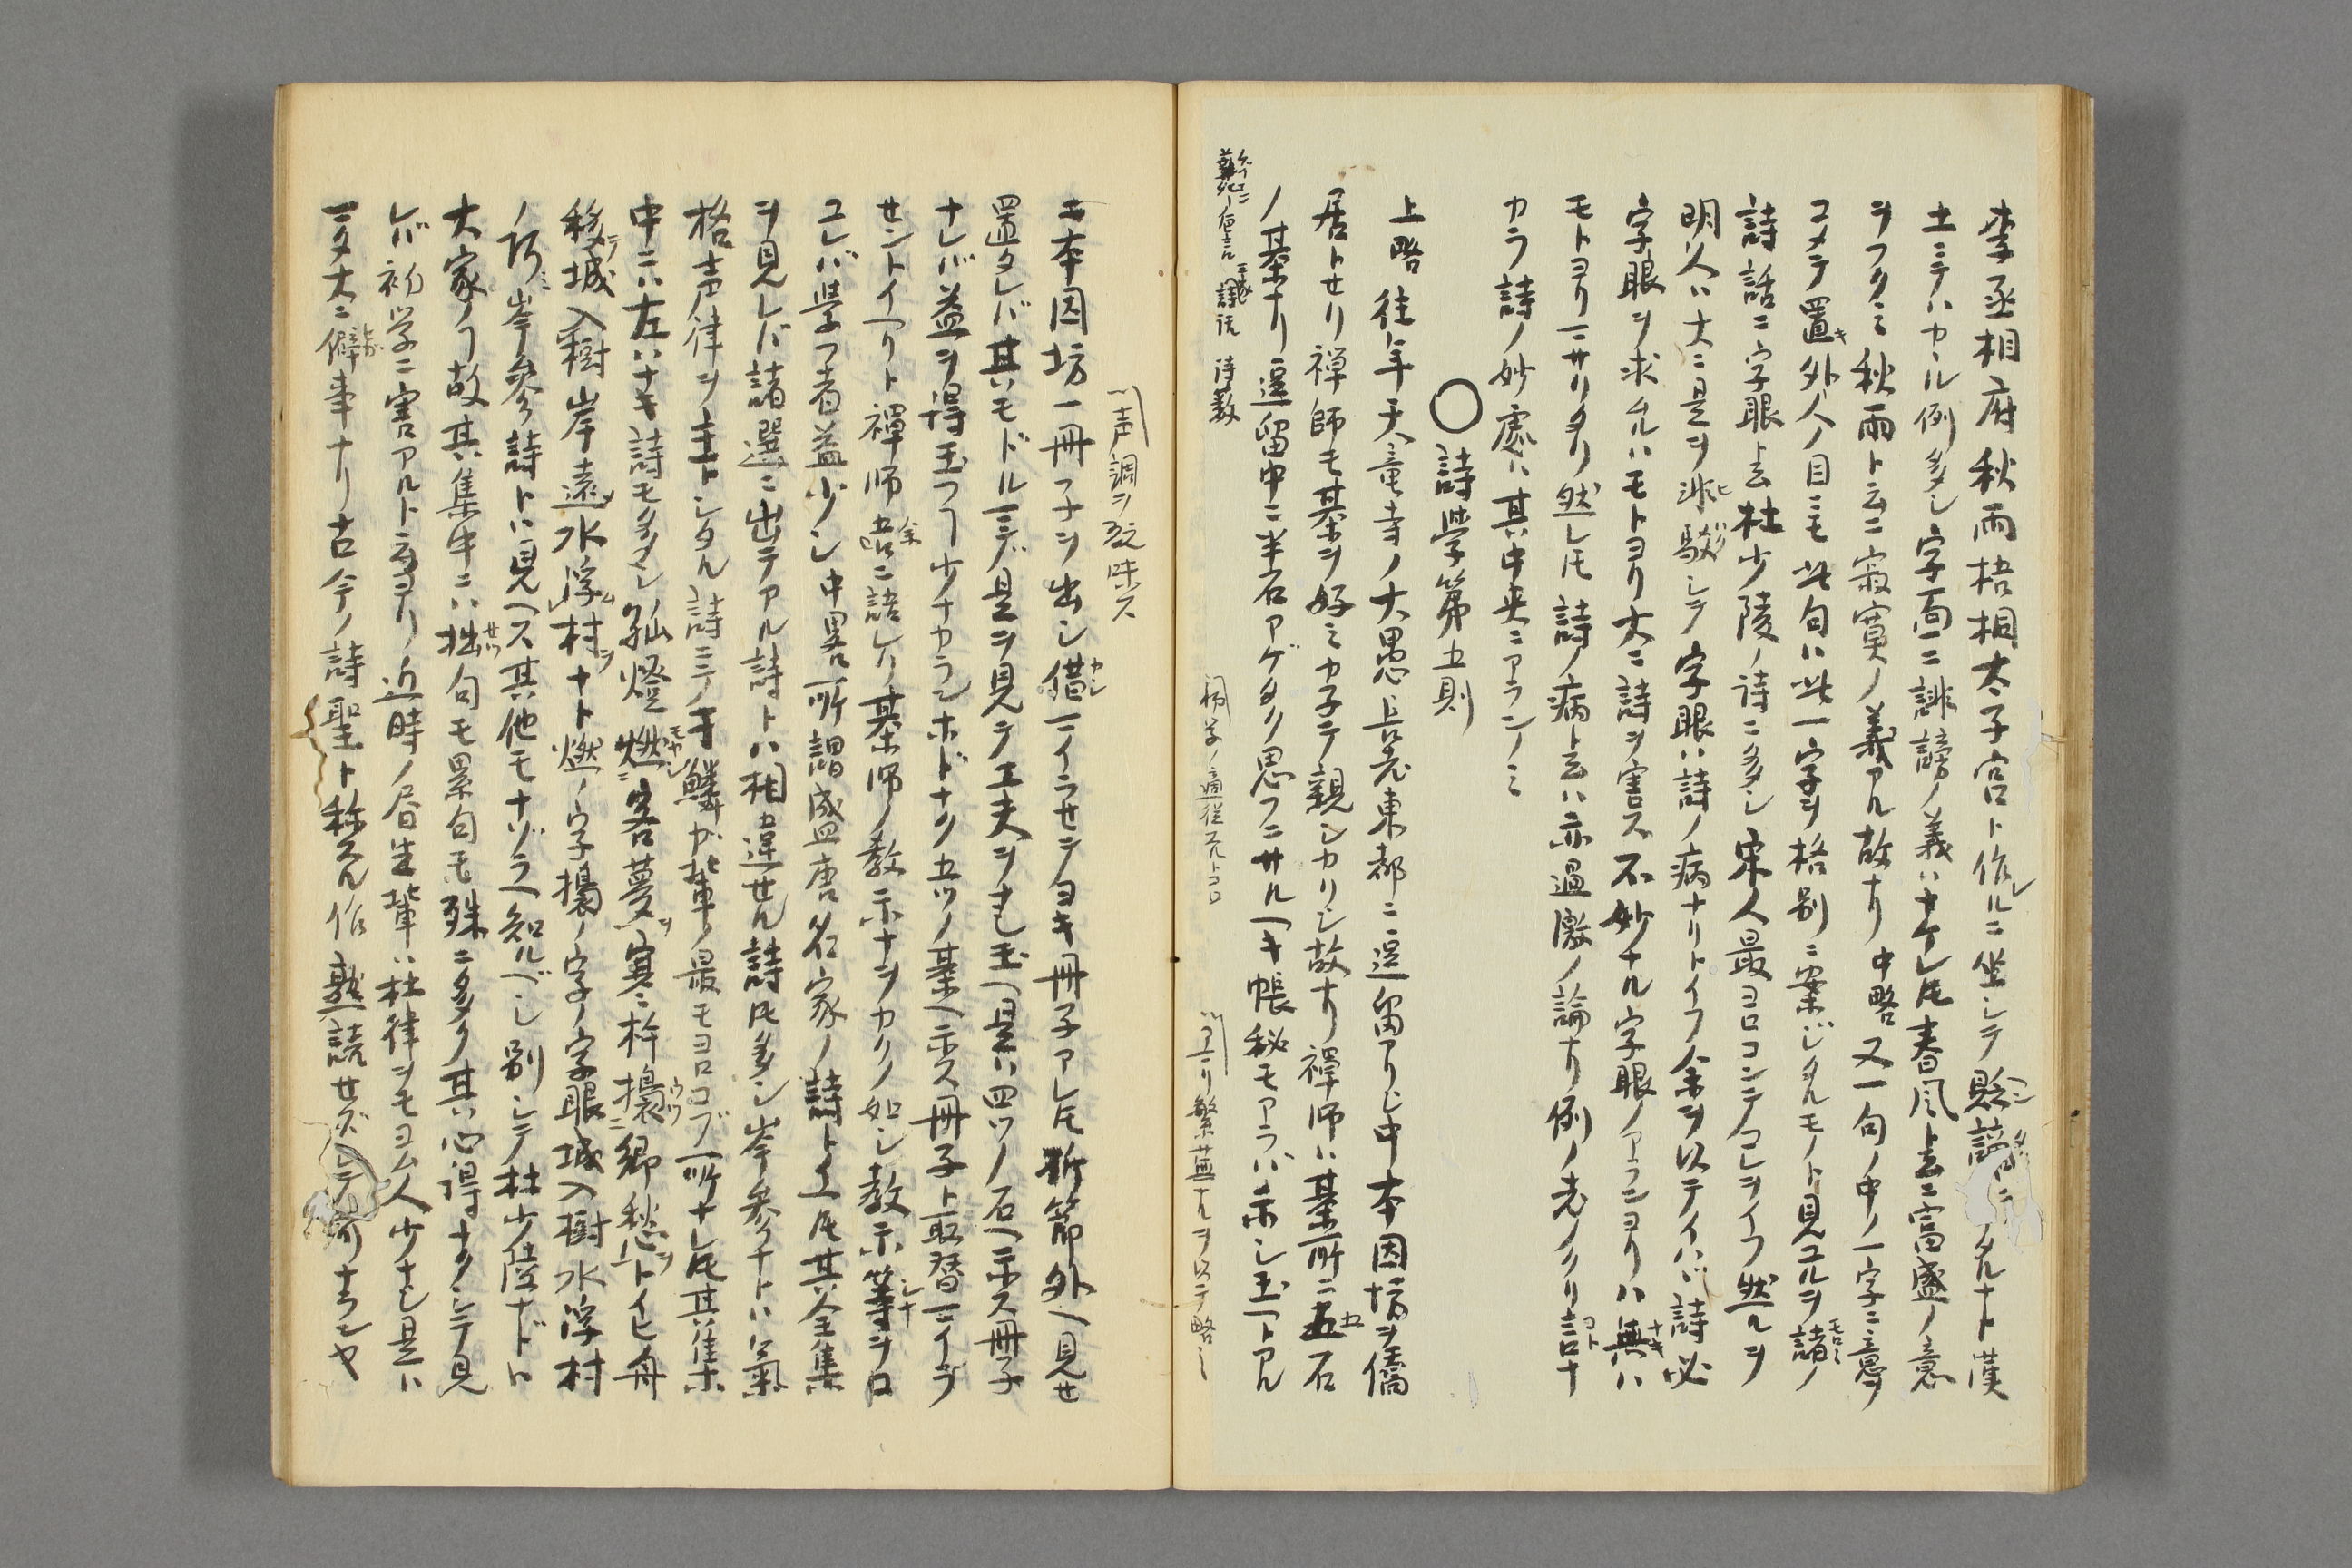 李丞相府秋雨梧桐太子宮ト作ルニ坐シテ貶謫ニ タルナト漢
土ニテハカヽル例多シ字面ニ誹謗ノ義ハナケレ𪜈春風ト云ニ富盛ノ意
ヲフクミ秋雨ト云ニ寂寞ノ義アル故ナリ中略又一句ノ中ノ一字ニ意ヲ
コメテ置キ外人ノ目ニモ此句ハ此一字ヲ格別ニ案ジタルモノト見ユルヲ諸ノ
詩話ニ字眼ト云杜少陵ノ詩ニ多シ宋人最ヨロコンテコレヲイフ然ルヲ
明人ハ大ニ是ヲ非駁シテ字眼ハ詩ノ病ナリトイフ余ヲ以テイハヾ詩必
字眼ヲ求ムルハモトヨリ大ニ詩ヲ害ス不妙ナル字眼ノアランヨリハ無ハ
モトヨリマサリタリ然レ𪜈詩ノ病ト云ハ亦過激ノ論ナリ例ノ老ノクリ言ナ
カラ詩ノ妙處ハ其中央ニアランノミ
〇詩学第五則
上略 往年天竜寺ノ大愚長老東都ニ逗留アリシ中本因坊ヲ僑
居トセリ禅師モ棊ヲ好ミカ子テ親シカリシ故ナリ禅師ハ棊所ニ五石
ノ棊ナリ逗留中ニ半石アゲタク思フニサルヘキ帳秘モアラバ示シ玉ヘトアル
詩教
初学ノ適従スルトコロ
繁蕪ナルヲ以テ略之
声調ヲ玩味ス
キ本因坊一冊フチヲ出シ借マイラセテヨキ冊子アレ𪜈斫節外ヘ見セ
置タレバ其モドルマデ是ヲ見テ工夫ヲナシ玉ヘ是ハ四ツノ石ヘ示ス冊子
ナレバ益ヲ得玉フヿ少ナカランホドナク五ツノ棊ヘ示ス冊子ト取替マイラ
セントイヘリト禅師余ニ語レリ棊師ノ教示ナヲカクノ如シ教示等ヲ口
ユレバ學フ者益少シ中畧所謂盛唐名家ノ詩トイヘ𪜈其全集
ヲ見レバ諸選ニ出テアル詩トハ相違セル詩𪜈多シ岑參ナトハ氣
格声律ヲ主トシタル詩ニテ于鱗カ輩ノ最モヨロコブ所ナレ𪜈其集
中ニハ左ハナキ詩モ多シ孤燈燃客夢寒杵搗郷愁トイヒ舟
移城入樹岸遠水浮村ナト燃ノ字搗ノ字ノ字眼城入樹水浮村
ノ所岑參詩トハ見ヘス其他モナゾラヘ知ルベシ別シテ杜少陵ナドハ
大家ノヿ故其集中ニハ拙句モ累句モ殊ニ多ク其心得ナクシテ見
レバ初学ニ害アルト云ヨリ近時ノ唇生輩ハ杜律ヲモヨム人少ナシ是ハ
マタ大ニ僻事ナリ古今ノ詩聖ト称スル作熟読セズ ナランヤ